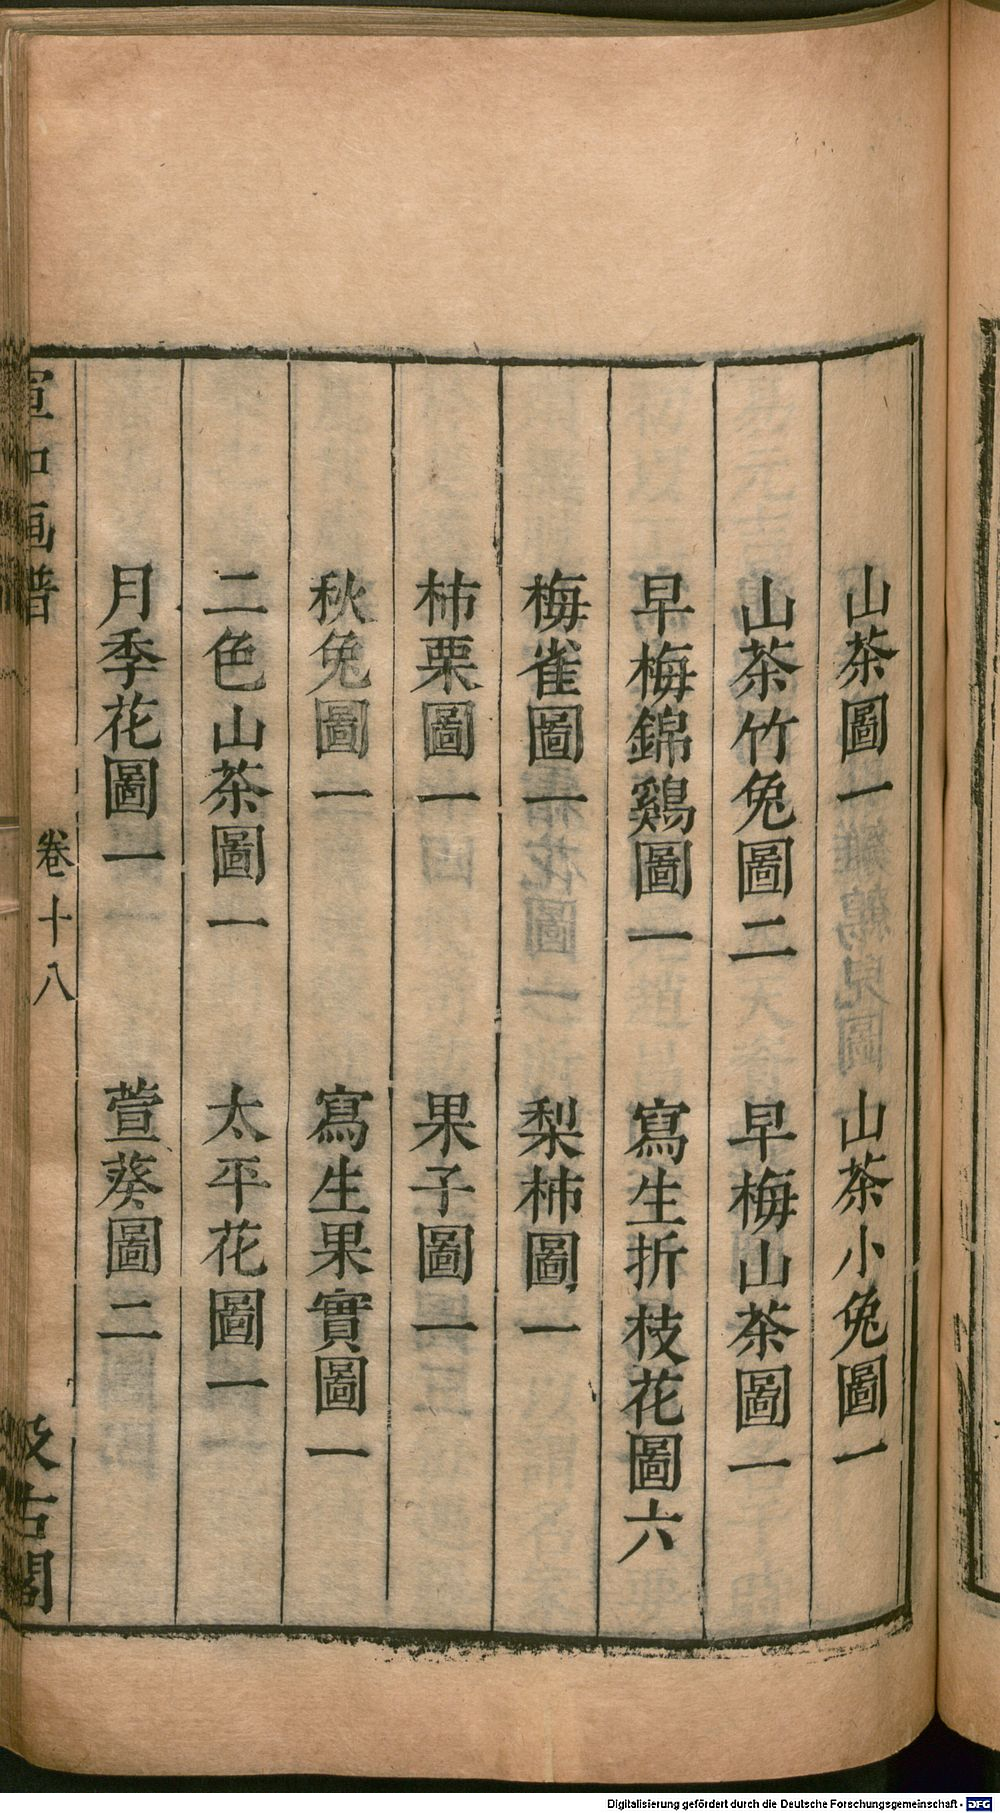 山茶圖一　山茶小兔圖一
山茶竹兔圖二　早梅山茶圖一
早梅錦鷄圖一　寫生折枝花圖六
梅雀圖一　梨柿圖一
柿栗圖一　果子圖一
秋兔圖一　寫生果實圖一
二色山茶圖一　太平花圖一
月季花圖一　萱葵圖二
宣和画譜　卷十八　汲古閣
Digitalisierung gefördert durch die Deutsche Forschungsgemeinschaft - DFG